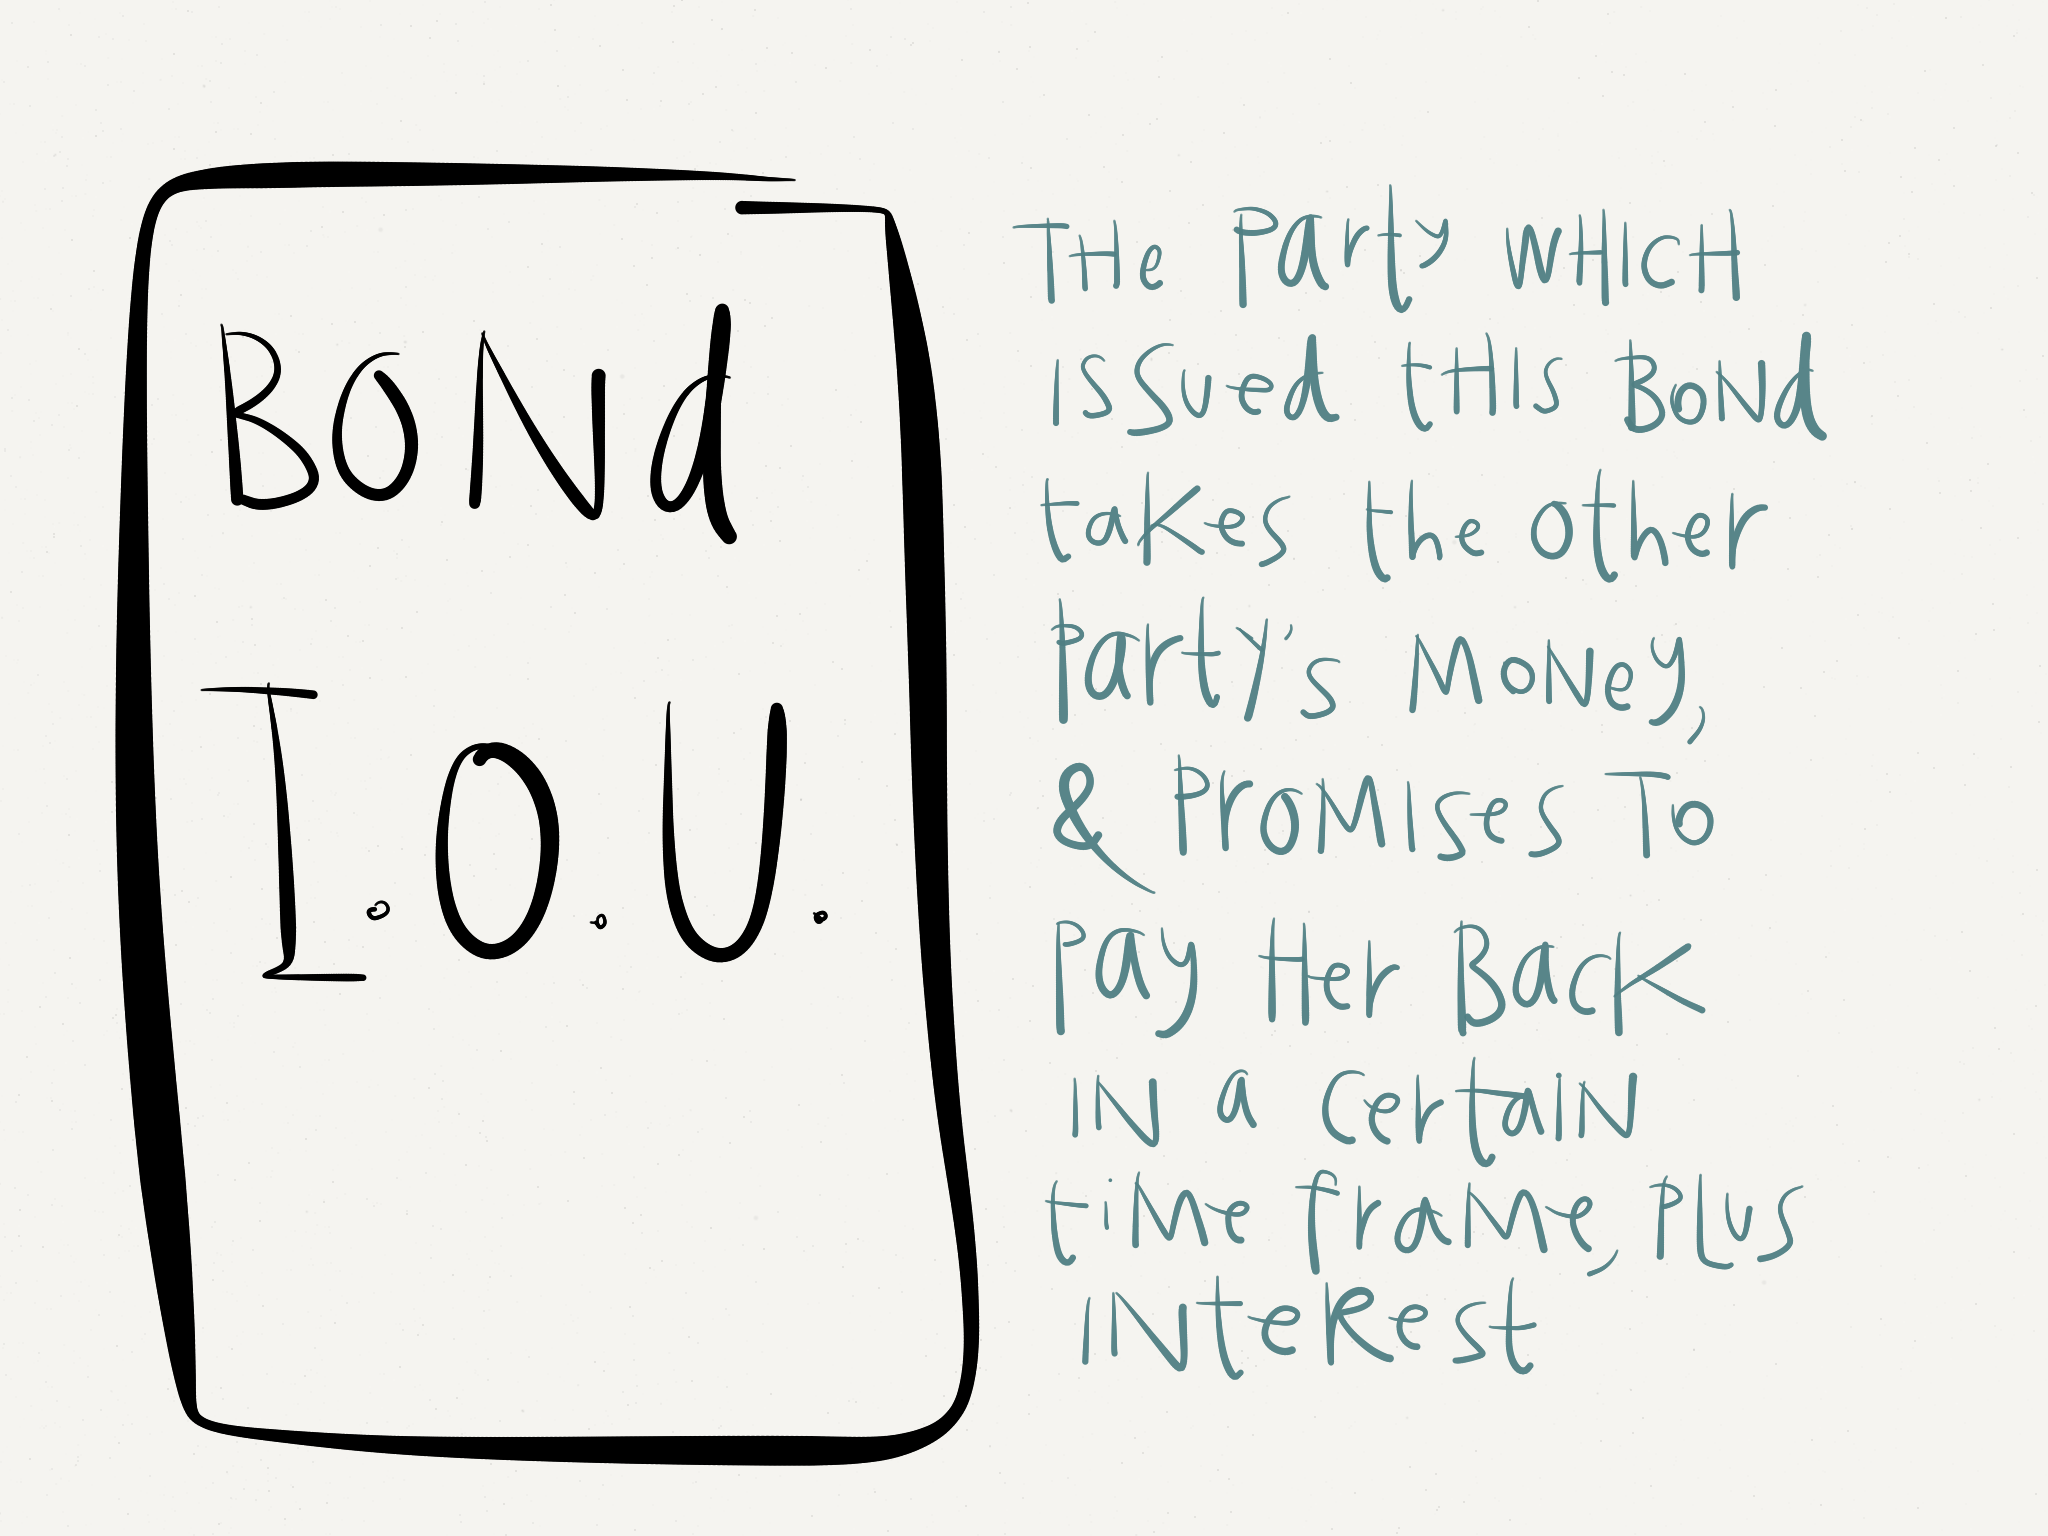 BONd
I.O.U.
THe Party WHICH
ISSued tHIS BONd
takes the other
Party's Money,
& Promises To
Pay Her Back
IN a certain
time frame, Plus
INteRest